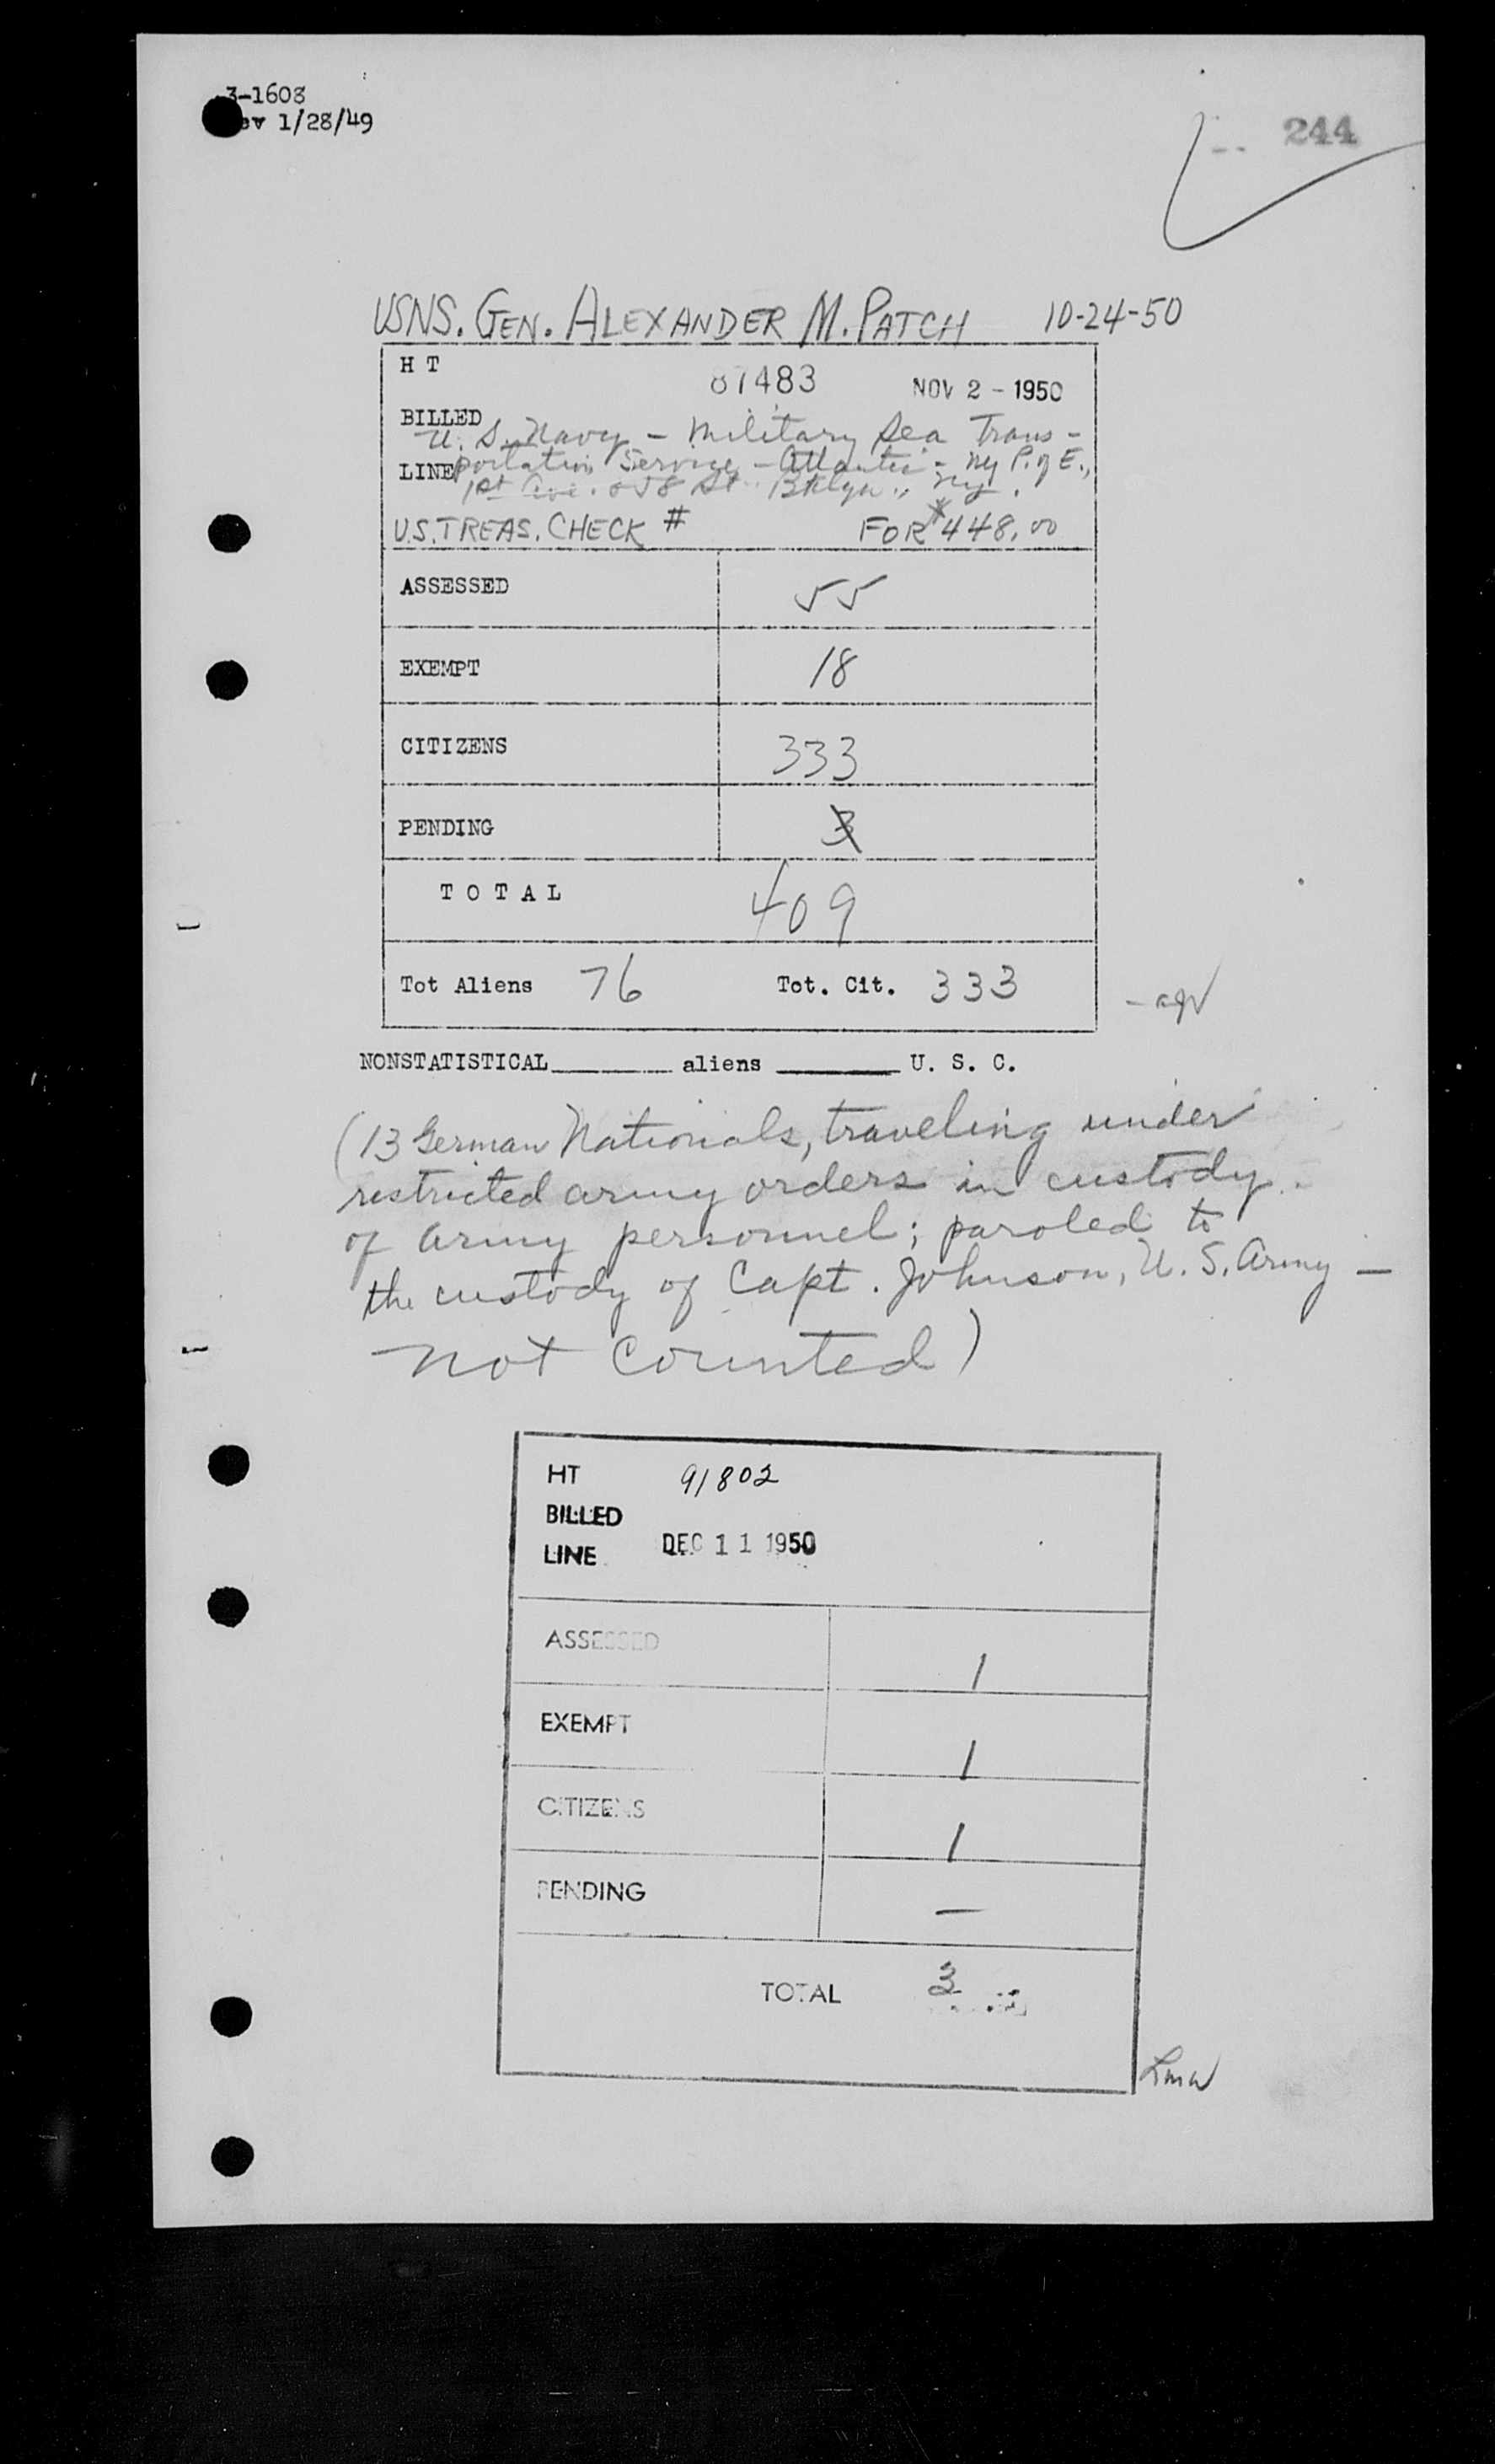 3-1608
ev 1/28/49
244
USNS. GEN. ALEXANDER M. PATCH 10-24-50
H T 87483 NOV 2 - 1950
BILLED
U. S. Navy - Military Sea Trans-
LINE portation Service - Atlantic - NY P. of E.,
1st Ave. 58 St. Bklyn., NY.
U.S. TREAS. CHECK # FOR $448.00
ASSESSED 55
EXEMPT 18
CITIZENS 333
PENDING 3
T O T A L 409
Tot Aliens 76 Tot. Cit. 333
NONSTATISTICAL aliens U. S. C.
(13 German Nationals, traveling under
restricted army orders in custody
of Army personnel; paroled to
the custody of Capt. Johnson, U. S. Army —
not counted)
HT 91802
BILLED
LINE DEC 11 1950
ASSESSED 1
EXEMPT 1
CITIZENS 1
PENDING —
TOTAL 3